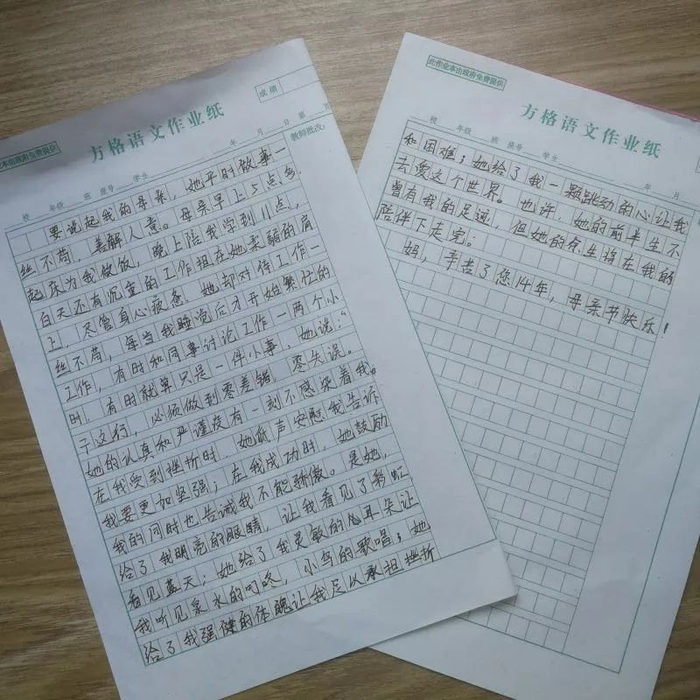 此作业本由政府免费提供
成绩
方格语文作业纸
年 月 日 第
校 年级 班 座号 学生
教师批改:
要说起我的母亲,她平时做事一
丝不苟,善解人意。母亲早上5点多
起床为我做饭,晚上陪我学到11点,
白天还有沉重的工作担在她柔弱的肩
上,尽管身心疲惫,她却对待工作一
丝不苟,每当我睡觉后才开始繁忙的
工作,有时和同事讨论工作一两个小
时,有时就算只是一件小事,她说:“
干这行,必须做到零差错,零失误。
她的认真和严谨没有一刻不感染着我。
在我受到挫折时,她低声安慰我告诉
我要更加坚强;在我成功时,她鼓励
我的同时也告诫我不能骄傲。是她,
给了我明亮的眼睛,让我看见了彩虹,
看见蓝天;她给了我灵敏的耳朵让
我听见泉水的叮咚,小鸟的歌唱;她
给了我强健的体魄让我足以承担挫折
此作业本由政府免费提供
方格语文作业纸
校 年级 班 座号 学生
年 月
和困难;她给了我一颗跳动的心让我
去爱这个世界。也许,她的前半生不
曾有我的足迹,但她的余生将在我的
陪伴下走完。
妈,辛苦了您14年,母亲节快乐!